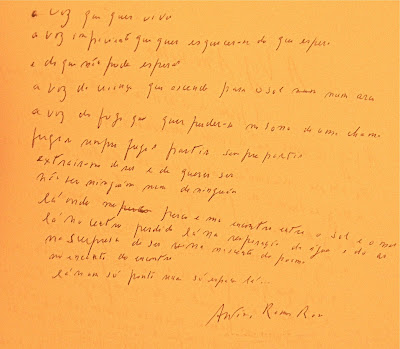 a voz que quer vivo
a voz impaciente que quer esquecer-se do que espera
e do que não pode esperar
a voz do que ascende para o sol numa
a voz do fogo que quer perder-se no sono de uma chama
fugir sempre fugir partir sempre partir
extrair-me do ser e de querer ser
não ser ninguém nem de ninguém
lá onde me perco e me encontro entre o sol e o mar
lá no centro perdido lá na respiração da água e do ar
na surpresa de ser no do poema
no encontro do encontro
lá num só ponto num só lá...
António Ramos Rosa